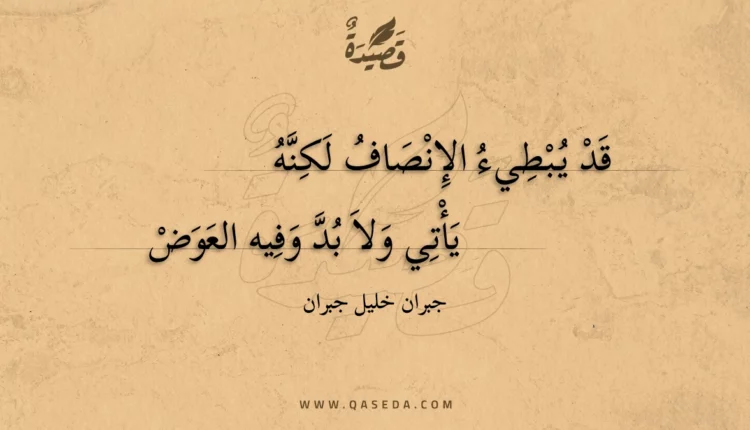 قَصِيْدَةٌ
قَدْ يُبْطِيءُ الإِنْصَافُ لَكِنَّهُ
يَأْتِي وَلاَ بُدَّ وَفِيه العَوَضْ
جبران خليل جبران
WWW.QASEDA.COM